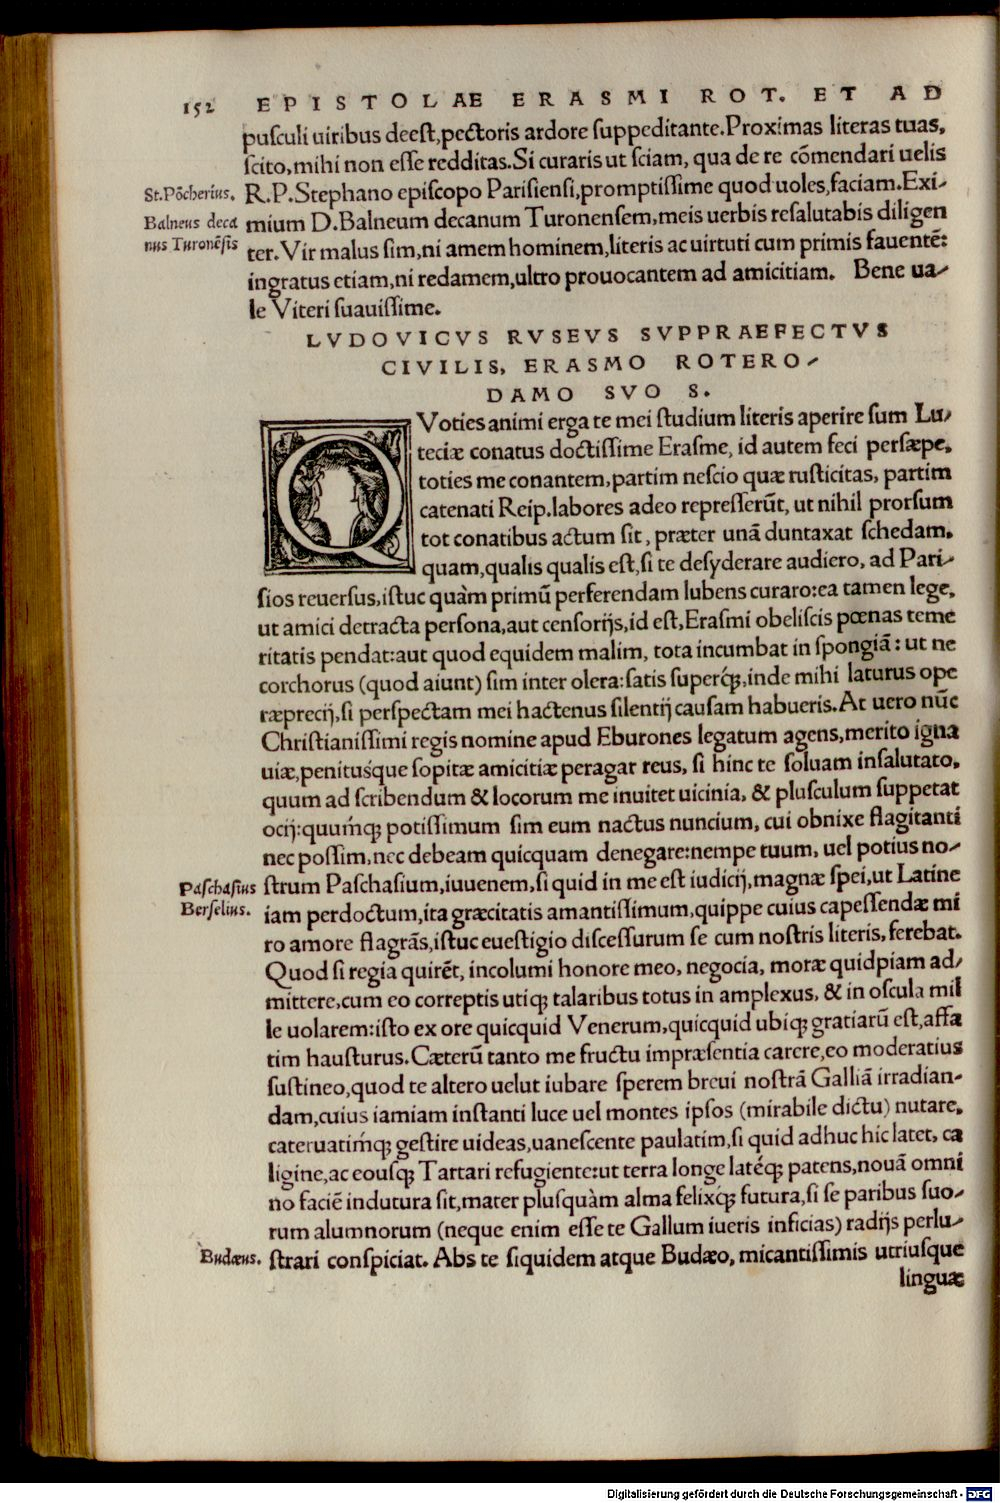 152 EPISTOLAE ERASMI ROT. ET AD
pusculi uiribus deest,pectoris ardore suppeditante.Proximas literas tuas,
scito,mihi non esse redditas.Si curaris ut sciam, qua de re cõmendari uelis
St.Põcherius.
R.P.Stephano episcopo Parisiensi,promptissime quod uoles,faciam.Exi-
Balneus deca
mium D.Balneum decanum Turonensem,meis uerbis resalutabis diligen
nus Turonẽsis
ter.Vir malus sim,ni amem hominem,literis ac uirtuti cum primis fauentẽ:
ingratus etiam,ni redamem,ultro prouocantem ad amicitiam. Bene ua-
le Viteri suauissime.
LVDOVICVS RVSEVS SVPPRAEFECTVS
CIVILIS, ERASMO ROTERO-
DAMO SVO S.
QVoties animi erga te mei studium literis aperire sum Lu-
teciæ conatus doctissime Erasme, id autem feci persæpe,
toties me conantem,partim nescio quæ rusticitas, partim
catenati Reip.labores adeo represserũt, ut nihil prorsum
tot conatibus actum sit, præter unã duntaxat schedam,
quam,qualis qualis est,si te desyderare audiero, ad Pari-
sios reuersus,istuc quàm primũ perferendam lubens curaro:ea tamen lege,
ut amici detracta persona,aut censorijs,id est,Erasmi obeliscis pœnas teme
ritatis pendat:aut quod equidem malim, tota incumbat in spongiã: ut ne
corchorus (quod aiunt) sim inter olera:satis superq́;,inde mihi laturus ope
ræprecij,si perspectam mei hactenus silentij causam habueris.At uero nũc
Christianissimi regis nomine apud Eburones legatum agens,merito igna
uiæ,penitusq́ue sopitæ amicitiæ peragar reus, si hinc te soluam insalutato,
quum ad scribendum & locorum me inuitet uicinia, & plusculum suppetat
ocij:quumq́; potissimum sim eum nactus nuncium, cui obnixe flagitanti
nec possim,nec debeam quicquam denegare:nempe tuum, uel potius no-
Paschasius
strum Paschasium,iuuenem,si quid in me est iudicij,magnæ spei,ut Latine
Berselius.
iam perdoctum,ita græcitatis amantissimum,quippe cuius capessendæ mi
ro amore flagrãs,istuc euestigio discessurum se cum nostris literis, ferebat.
Quod si regia quirẽt, incolumi honore meo, negocia, moræ quidpiam ad-
mittere,cum eo correptis utiq; talaribus totus in amplexus, & in oscula mil
le uolarem:isto ex ore quicquid Venerum,quicquid ubiq; gratiarũ est,affa
tim hausturus.Cæterũ tanto me fructu impræsentia carere,eo moderatius
sustineo,quod te altero uelut iubare sperem breui nostrã Galliã irradian-
dam,cuius iamiam instanti luce uel montes ipsos (mirabile dictu) nutare,
cateruatimq́; gestire uideas,uanescente paulatim,si quid adhuc hic latet, ca
ligine,ac eousq; Tartari refugiente:ut terra longe latéq; patens,nouã omni
no faciẽ indutura sit,mater plusquàm alma felixq́; futura,si se paribus suo-
rum alumnorum (neque enim esse te Gallum iueris inficias) radijs perlu-
Budæus.
strari conspiciat. Abs te siquidem atque Budæo, micantissimis utriusque
linguæ
Digitalisierung gefördert durch die Deutsche Forschungsgemeinschaft - DFG